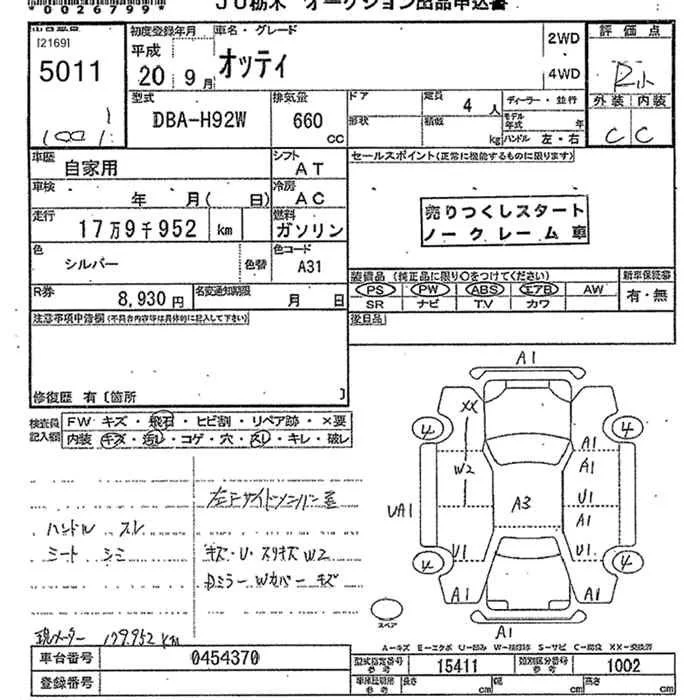 *0026799*
JU栃木 オークション出品申込書
出品番号 [2169] 5011
初度登録年月 平成 20 9月
車名・グレード オッティ
2WD
4WD
評価点
外装 内装
C C
型式 DBA-H92W
排気量 660 CC
ドア
形状
定員 4 人
積載 kg
ディーラー・並行
モデル年式 年
ハンドル 左・右
車歴 自家用
シフト AT
セールスポイント(正常に機能するものに限ります)
車検 年 月( 日)
冷房 AC
走行 17万9千952 km
燃料 ガソリン
売りつくしスタート
ノークレーム車
色 シルバー 色替
色コード A31
装備品 (純正品に限り○をつけてください)
新車保証書
PS PW ABS エアB AW
有・無
SR ナビ T.V カワ
R券 8,930円
名変通知期限 月 日
後日品
注意事項申告欄(不具合内容等は具体的に記入して下さい)
修復歴 有〔箇所 〕
検査員記入欄
FW キズ・飛石・ヒビ割・リペア跡・×要
内装 キズ・汚レ・コゲ・穴・スレ・キレ・破レ
ハンドル スレ
シート シミ
キズ・U・スリキズ W2
Dミラー Wカバー キズ
現メーター 179.952 KM
A1
XX
4 4
A1
W2 A1
UA1 A3 U1
A1
U1 U1
4 4
A1 A1
A1
スペア
A-キズ E-エクボ U-凹み W-補修跡 S-サビ C-腐蝕 XX-交換済
車台番号 0454370
型式指定番号 参考 15411
類別区分番号 参考 1002
登録番号
参考 長さ cm 幅 cm 高さ cm